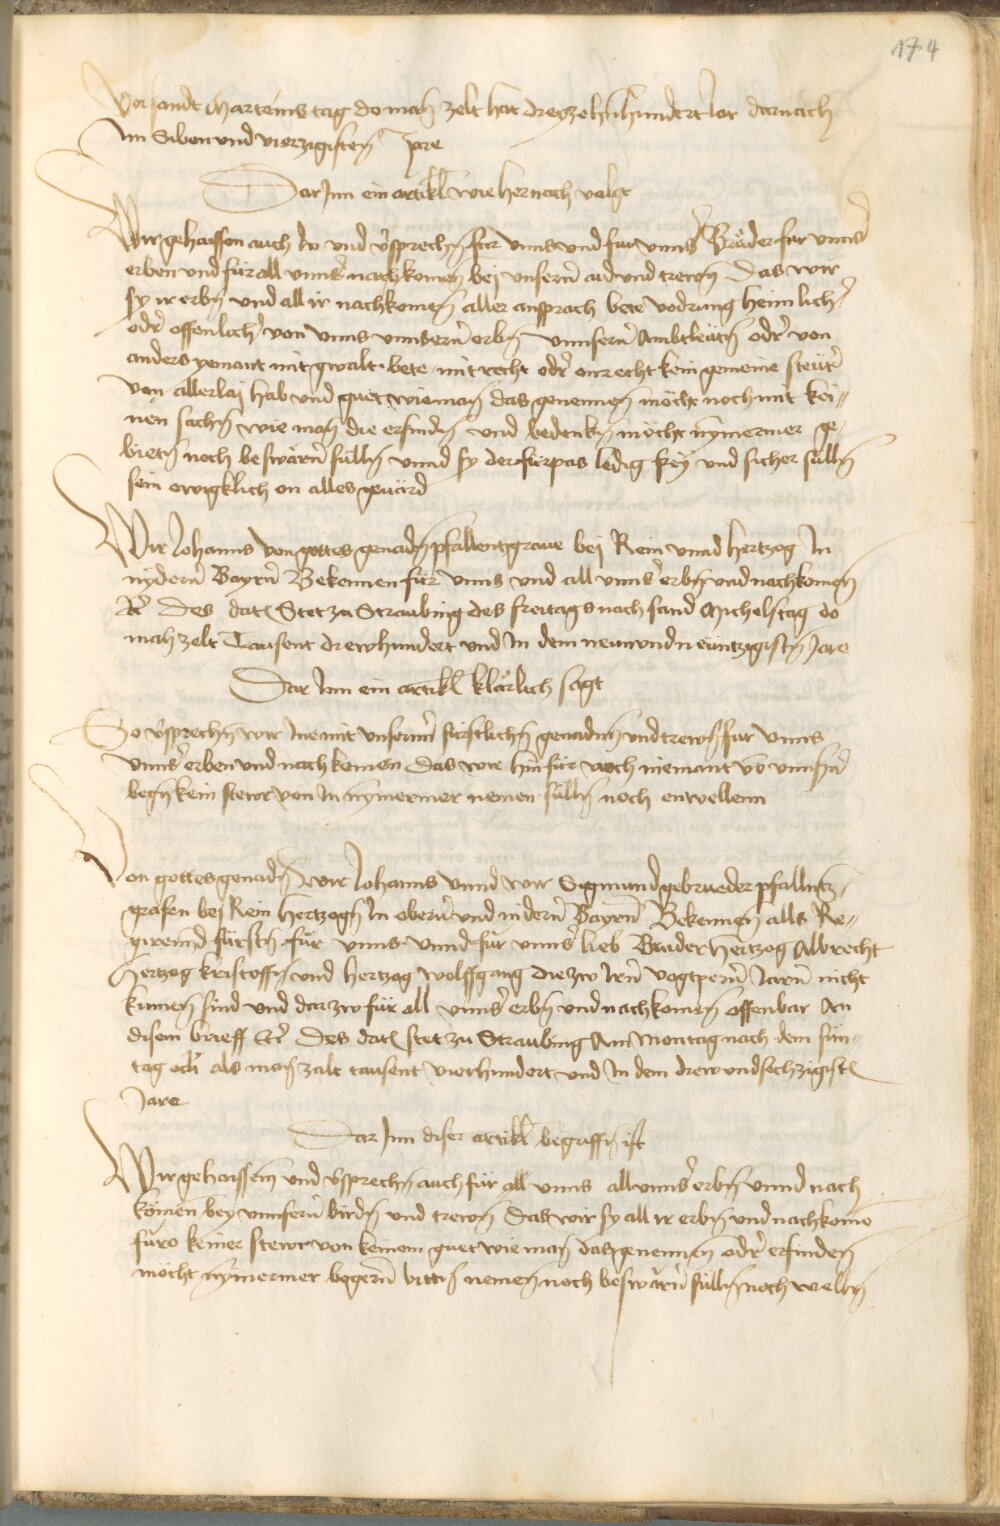 174
Vor sandt Marteins tag do man zelt hat dreyzehnhundert Jar darnach
Im Siben und vierzigisten Jare
Dar Inn ein artikl wie hernach volgt
Wir gehaissen auch In und v͛sprechn̄ für unns und für unns͛ Brüder für unns͛
erben und für all unns͛ nachkomen̄ bei unsern̄ aid und trewn̄ Das wir
sy ir erbn̄ und all ir nachkomen̄ aller ansprach bete vodrung heimlich͛
od͛ offenlich͛ von unns unnsern̄ erbn̄ unnsern̄ Ambtleütn̄ od͛ von
anders yemant mit gwalt bete mit recht od͛ onrecht kein gemeine steür͛
von allerlaj hab und guet wie man̄ das genennen̄ möcht noch mit kei⸗
nen sachn̄ wie man̄ die erfindn̄ und bedenkn̄ möcht nymermer ge⸗
bietn̄ noch beswärn̄ sülln̄ unnd sy der fürpas ledig frey und sicher sülln̄
sein ewigklich on alles geuärd
Wir Johanns von gottes genadn̄ pfallentzgraue bej Rein unnd hertzog In
nydern̄ Bayrn̄ Bekennen für unns und all unns͛ erbn̄ und nachkomen̄
Rc͛ Des dat͛ Stet zu Straubing des freitags nach sand Michelstag do
man zelt Tausent drewhundert und In dem neunundneuntzigistn̄ Jare
Dar Inn ein artikl klärlich sagt
So v͛sprechn̄ wir Ine mit unsernn̄ fürstlichn̄ genadnn̄ und trewn̄ für unns
unns͛ erben und nachkomen Das wir hinfür noch niemant vō unnsn͛
wegn̄ kein stewr von In nymermer nemen sülln̄ noch enwellenn
Von gottes genadn̄ wir Johanns unnd wir Sigmund gebrueder pfallntz⸗
grafen bej Rein hertzogn̄ In obern̄ und nidern̄ Bayrn̄ Bekennen̄ alls Re⸗
girennd fürstn̄ für unns unnd für unns͛ lieb Brüder Hertzog Albrecht
Hertzog kristoffn̄ und hertzog wolffgang die zw Irn̄ vogtpern̄ Jarn̄ nicht
kumen̄ sind und dar zw für all unns͛ erbn̄ und nachkomen̄ offenbar An
disem brieff Rc͛ Des dat͛ stet zu Straubing Am Montag nach dem sun⸗
tag oc͛li als man̄ zalt tausent vierhundert und In dem drew undsechzigist͛
Jare
Dar Inn diser artikl begriffn̄ ist
Wir gehaissenn und v͛sprechn̄ auch für all unns all unns͛ erbn̄ unnd nach
komen bey unnsern̄ wirdn̄ und trewn̄ Das wir sy all ir erbn̄ und nachkomē
füro keiner stewr von keinem guet wie man̄ das genennen̄ od͛ erfinden̄
möcht nymermer begern̄ bittn̄ nemen̄ noch beswärn̄ sülln̄ noch welln̄